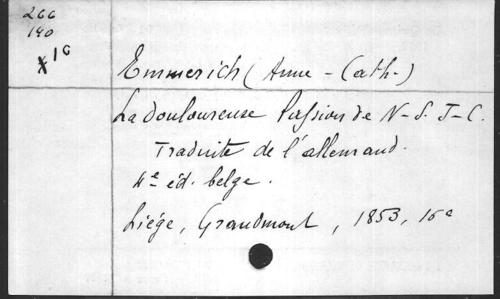 266
190
x 16
Emmerich (Anne-Cath.)
La douloureuse Passion de N-S. J-C.
Traduite de l'allemand.
4e éd. belge.
Liége, Grandmont, 1853, 16o